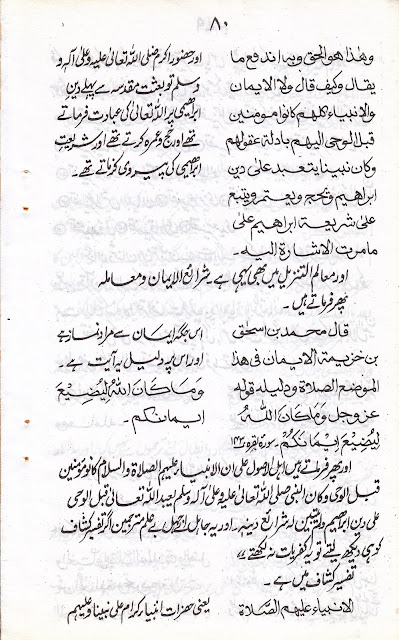 ۸۰
وھٰذا ھوالحق وبہ اندفع ما
یقال وکیف قال ولا الایمان
والانبیاء کلھم کانوا مومنین
قبل الوحی الیھم بادلۃ عقولھم
وکان نبینا یتعبد علیٰ دین
ابراھیم ویحج ویعتمر ویتبع
علیٰ شریعۃ ابراھیم علیٰ
مامرت الاشارۃ الیہ۔
اور حضور اکرم صلی اللہ تعالیٰ علیہ وعلیٰ آلہٖ و
وسلم تو بعثت مقدسہ سے پہلے دین
ابراھیمی پر اللہ تعالیٰ کی عبادت فرماتے
تھے اور حج وعمرہ کرتے تھے اور شریعتِ
ابراھیمی کی پیروی کرماتے تھے۔
اور معالم التنزیل میں بھی یہی ہے شرائع الایمان ومعاملہ
پھر فرماتے ہیں۔
قال محمد بن اسحٰق
بن خزیمۃ الایمان فی ھٰذا
الموضع الصلاۃ ودلیلہ قولہ
عزوجل وَمَاکَانَ اللّٰہُ
لِیُضِیْعَ اِیْمَانَکُمْ۔ سورہ بقرہ ۱۴۳
اس جگہ ایمان سے مراد نماز ہے
اور اس پہ دلیل یہ آیت ہے۔
وَمَاکَانَ اللّٰہُ لِیُضِیْعَ
ایمانکم۔
اور پھر فرماتے ہیں اہل الاصول علی ان الانبیاء علیہم الصلاۃ والسلام کانوا مؤمنین
قبل الوحی وکان النبی صلی اللہ تعالیٰ علیہ وعلیٰ آلہٖ وسلم یعبد اللہ تعالیٰ قبل الوحی
علی دین ابراھیم ولم یتبین لہ شرائع دینہ۔ اور یہ جاہل بے علم مترجمین اگر تفسیر کشاف
کو ہی دیکھ لیتے تو یہ کفریات نہ لکھتے
تفسیر کشاف میں ہے۔
الانبیاء علیھم الصّلاۃ
یعنی حضرات انبیاء کرام علیٰ نبینا وعلیہم